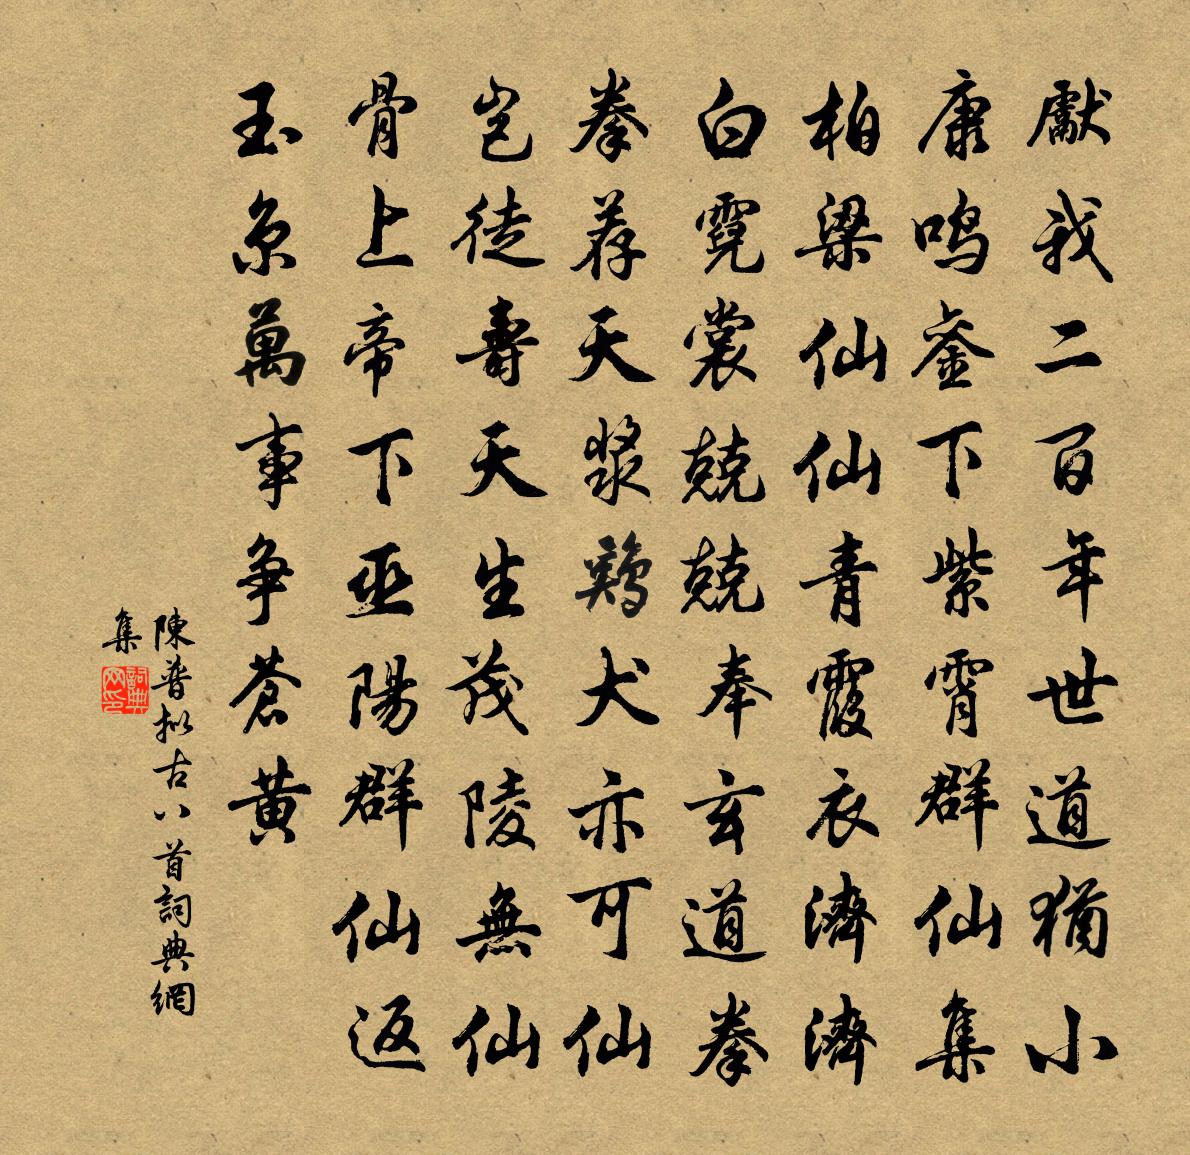 獻我二百年世道猶小
康鳴銮下紫霄群仙集
柏梁仙仙青霞衣濟濟
白霓裳兢兢奉玄道拳
拳荐天漿鷄犬亦可仙
岂徒壽天生茂陵無仙
骨上帝下巫陽群仙返
玉京萬事争蒼黄
陳普拟古八首詞典網
集
詞典
网印